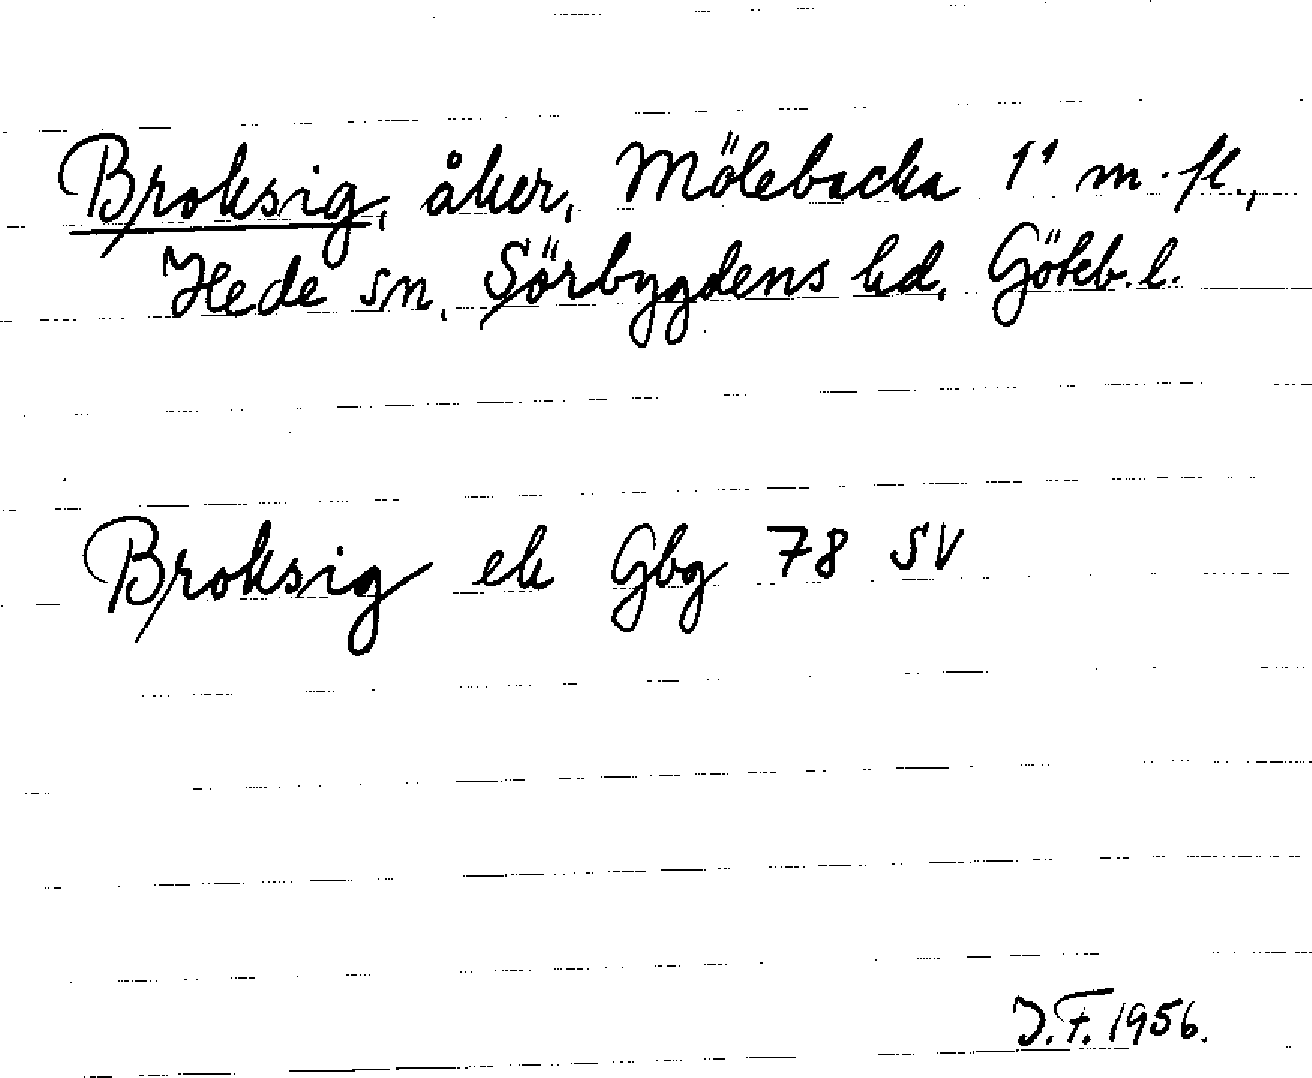 Broksig, åker, Mölebacka 1¹ m. fl.,
Hede sn, Sörbygdens hd, Göteb. l.
Broksig ek Gbg 78 SV
J.F. 1956.